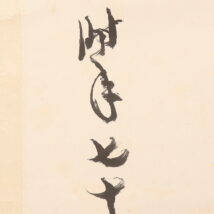 時年七十